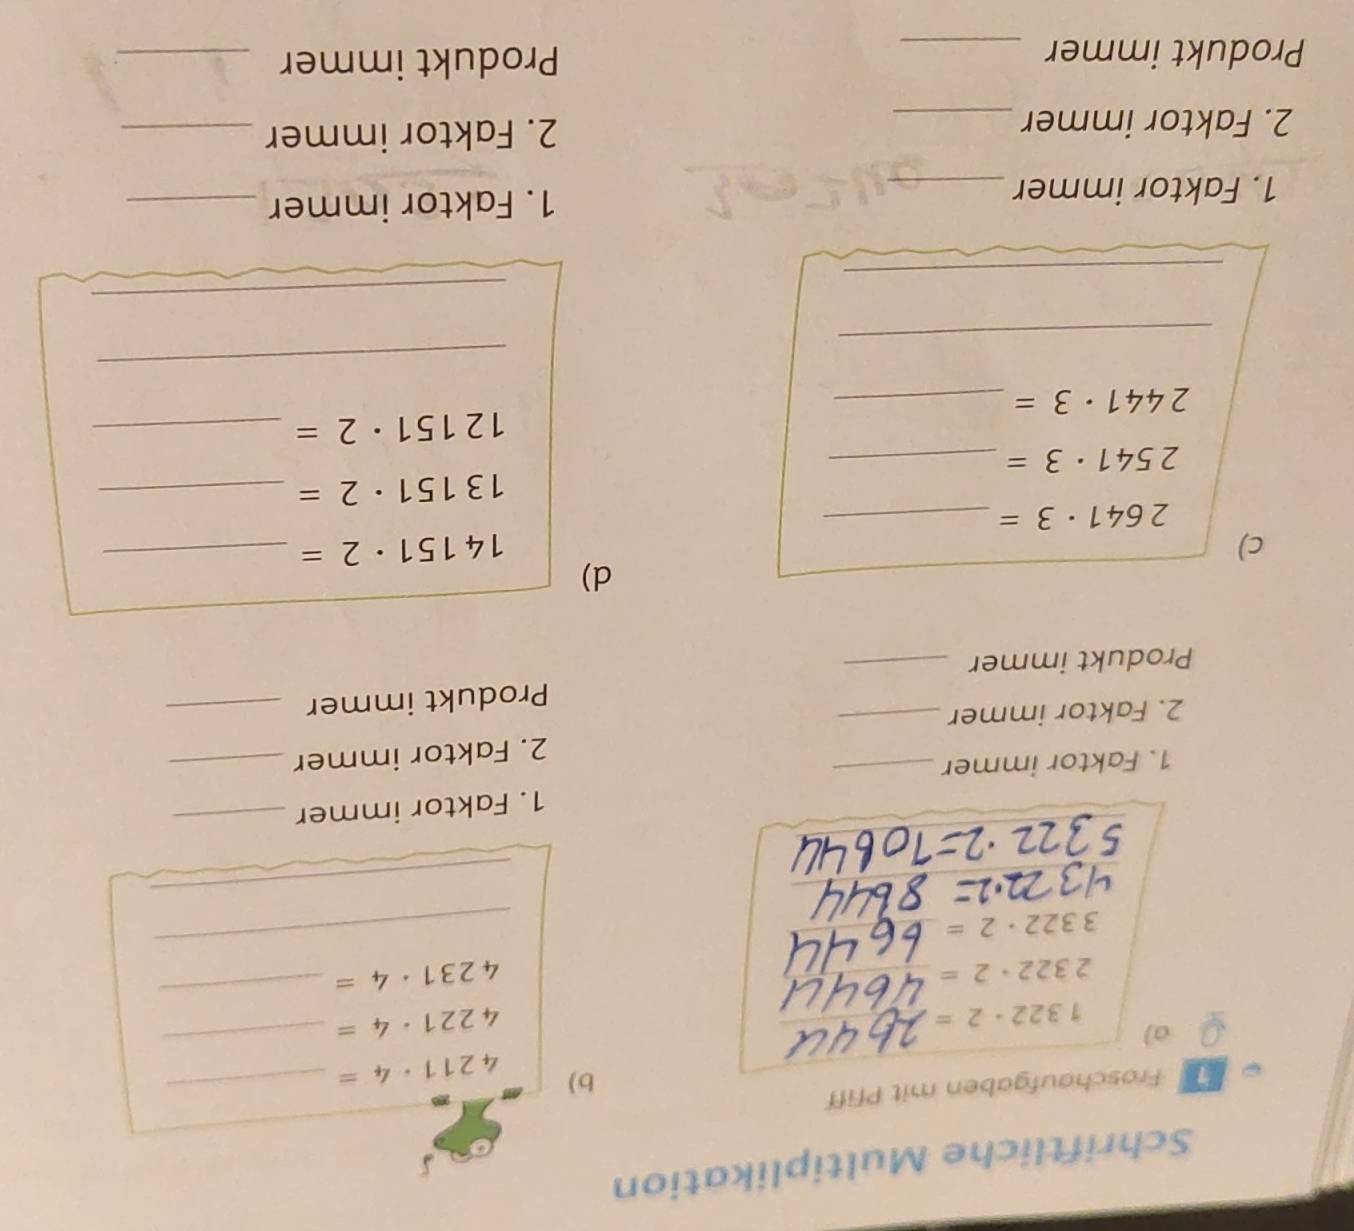 Schriftliche Multiplikation
1 Froschaufgaben mit Pfiff
a)
1 322 · 2 = 2644
2 322 · 2 = 4644
3 322 · 2 = 6644
4322·2= 8644
5322·2=10644
1. Faktor immer ____
2. Faktor immer ____
Produkt immer ____
b)
4 211 · 4 = ____
4 221 · 4 = ____
4 231 · 4 = ____
1. Faktor immer ____
2. Faktor immer ____
Produkt immer ____
c)
2 641 · 3 = ____
2 541 · 3 = ____
2 441 · 3 = ____
1. Faktor immer ____
2. Faktor immer ____
Produkt immer ____
d)
14 151 · 2 = ____
13 151 · 2 = ____
12 151 · 2 = ____
1. Faktor immer ____
2. Faktor immer ____
Produkt immer ____